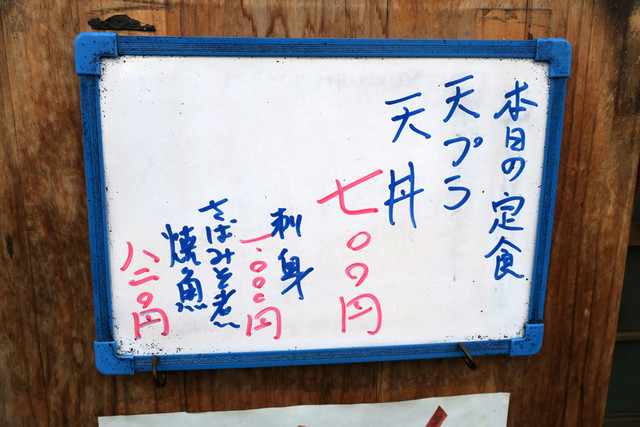 本日の定食
天プラ
天丼
七〇〇円
刺身
一.〇〇〇円
さばみそ煮
焼魚
八二〇円